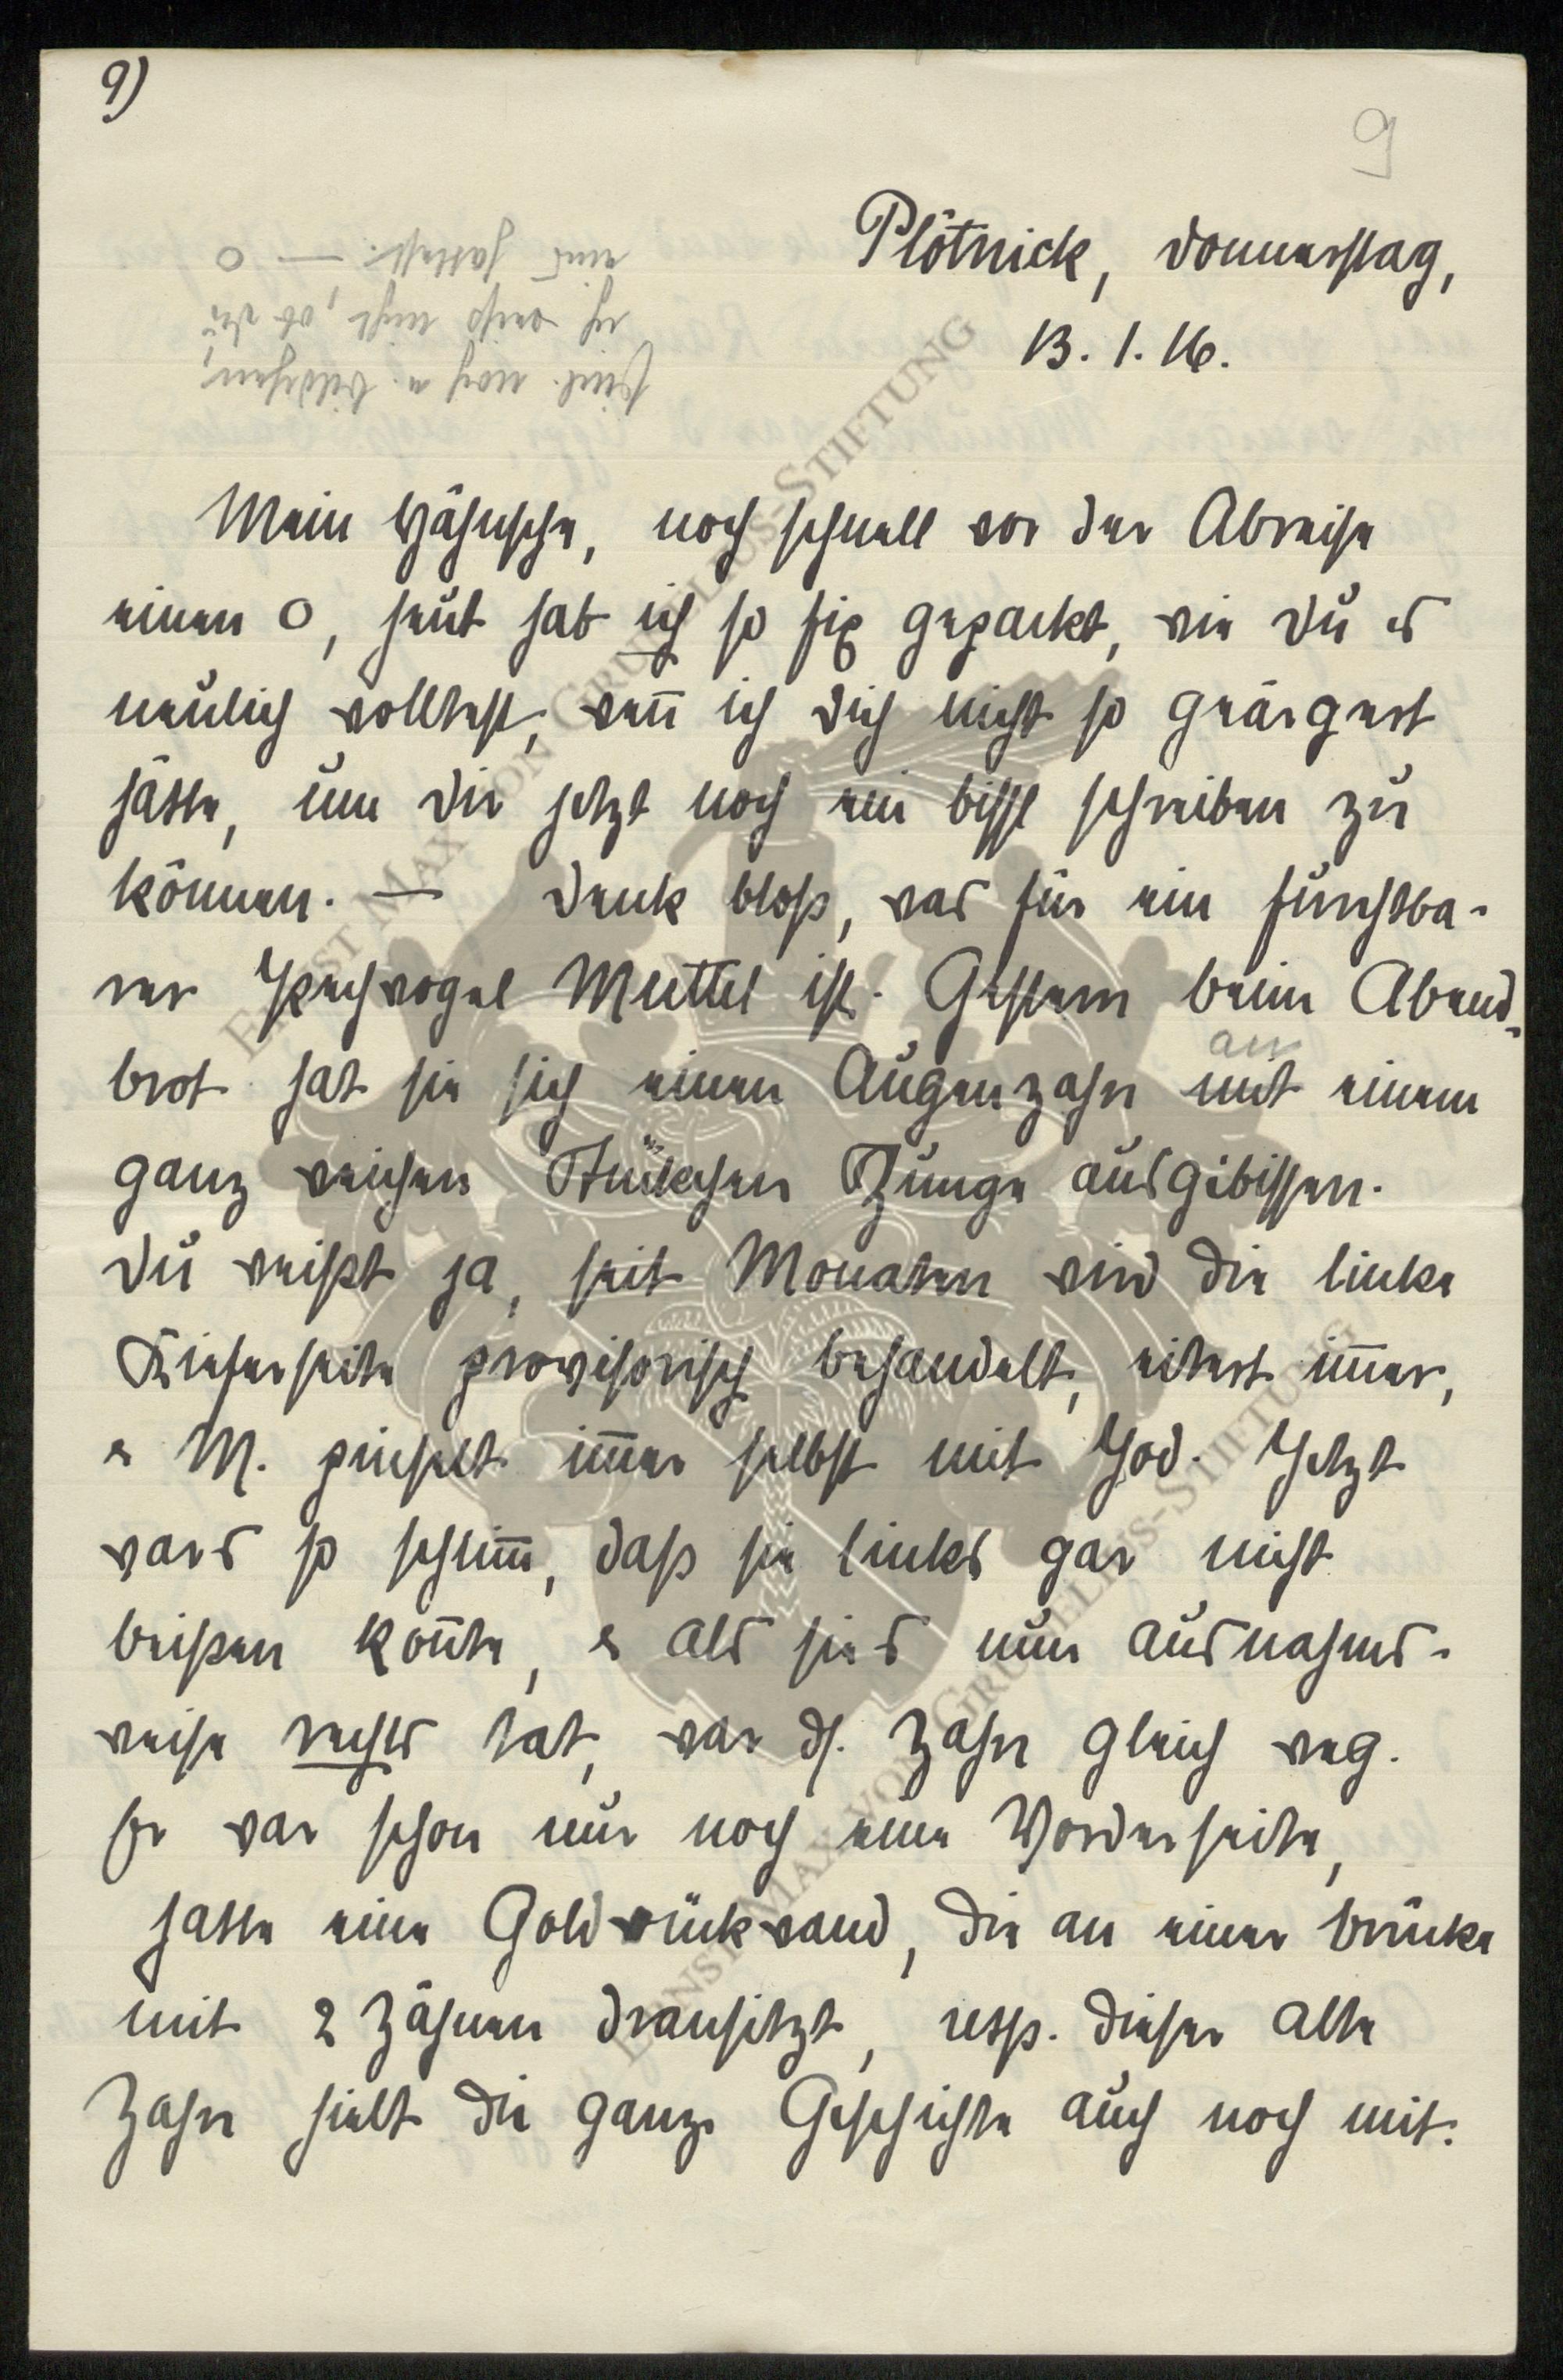 9)
9
Plötnick, Donnerstag,
13. 1. 16.
Sind noch n. Bildchen,
ich weiß nicht, ob Du
eins hattest. — O
Mein Hähnsche, noch schnell vor der Abreise
einen O, heut hab ich so fix gepackt, wie Du es
neulich wolltest, wen̄ ich Dich nicht so geärgert
hätte, um Dir jetzt noch ein bissl schreiben zu
können. — Denk bloß, was für ein furchtba-
rer Pechvogel Muttel ist. Gestern beim Abend-
brot hat sie sich einen Augenzahn mit einem
an
ganz weichen Stückchen Zunge ausgebissen.
Du weißt ja, seit Monaten wird die linke
Kieferseite provisorisch behandelt, eitert im̄er,
u M. pinselt im̄er selbst mit Jod. Jetzt
wars so schlim̄, daß sie links gar nicht
beißen kon̄te, u als sies nun ausnahms-
weise rechts tat, war ds. Zahn gleich weg.
Er war schon nur noch eine Vorderseite,
hatte eine Goldrückwand, die an einer Brücke
mit 2 Zähnen dransitzt, resp. dieser alte
Zahn hielt die ganze Geschichte auch noch mit.
ERNST MAX VON GRUNELIUS-STIFTUNG
ERNST MAX VON GRUNELIUS-STIFTUNG